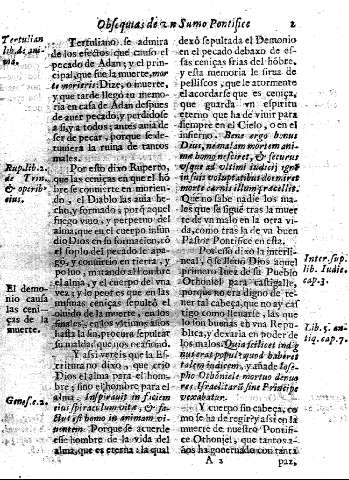 Obsequias de un Sumo Pontifice 2
Tertulian
lib. de ani-
ma.
Tertuliano se admira
de los efectos que causò el
pecado de Adan; y el prin-
cipal, que fue la muerte, mor-
te morieris: Dize, o muerte,
y que tarde llegò tu memo-
ria en casa de Adan despues
de auer pecado, y perdidose
a si, y a todos; antes auia de
ser de pecar, porque se de-
tuuiera la ruina de tantos
males.
Rup. lib. 2.
de Trin.
& operib9
eius.
Por esto dixo Ruperto,
que las ceniças en que el hõ-
bre se conuierte en murien-
do, el Diablo las auia he-
cho, y formado; porq aquel
fuego viuo, y perpetuo del
alma, que en el cuerpo infun
dio Dios en su formacion, cõ
el soplo del pecado le apa-
gò, y conuirtio en tierra, y
poluo, matando al hombre
el alma, y el cuerpo de vna
vez, y lo peor es que en las
mismas ceniças sepultò el
oluido de la muerte, en los
finales, en los vltimos años
hasta la fin, porque sepultar
su nada,
El demo-
nio causa
las ceni-
ças de la
muerte.
Y assi vereis que la Es-
critura no dixo, que criò
Dios el alma para el hom-
bre, sino el hombre para el
alma. Inspirauit in faciem
eius spiraculum vitæ, & fa-
ctus est homo in animam vi-
uentem. Porque se acuerde
esse hombre de la vida del
alma, que es eterna: la qual
Genes. c. 2.
dexò sepultada el Demonio
en el pecado debaxo de es-
sas ceniças frias del hõbre,
y esta memoria le sirua de
pellizcos, que le atormente
el acordarse que es ceniça,
que guarda vn espiritu
eterno que ha de viuir para
siempre en el Cielo, o en el
infierno. Bene ergo bonus
Dius, ne malam mortem ani-
mæ homo nesciret, & securus
vsque ad vltimi iudicij igné
in suis voluptatibus dormiret
morte carnis illum
Que no sabe nadie los ma-
les que se sigue tras la muer
te de vn malo en la otra vi-
da, como tras la de vn buen
Pastor Pontifice en esta.
Pos esso dixo la interli-
neal, q se lleuò Dios aquel
primero Iuez de su Pueblo
Othoniel para castigalle,
porque no era digno de te-
ner tal cabeça, que no ay cas
tigo como lleuarle, las que
son buenas en vna Republi-
ca, y dexarla en poder de
los malos. Quia scilicet indig
nus erat populus quod haberet
talem iudicem, y añade Iose-
pho Othoniele mortuo denuo
res Israelitarũ sine Principe
vexabatur.
Inter. sup.
lib. Iudic.
cap. 3.
Lib. 5. an-
tiq. cap. 7.
Y cuerpo sin cabeça, co
mo se ha de regir? y assi en la
muerte de nuestro Pontifi-
ce Othoniel, que tantos a-
ños ha gouernado con tanta
A 2 paz,